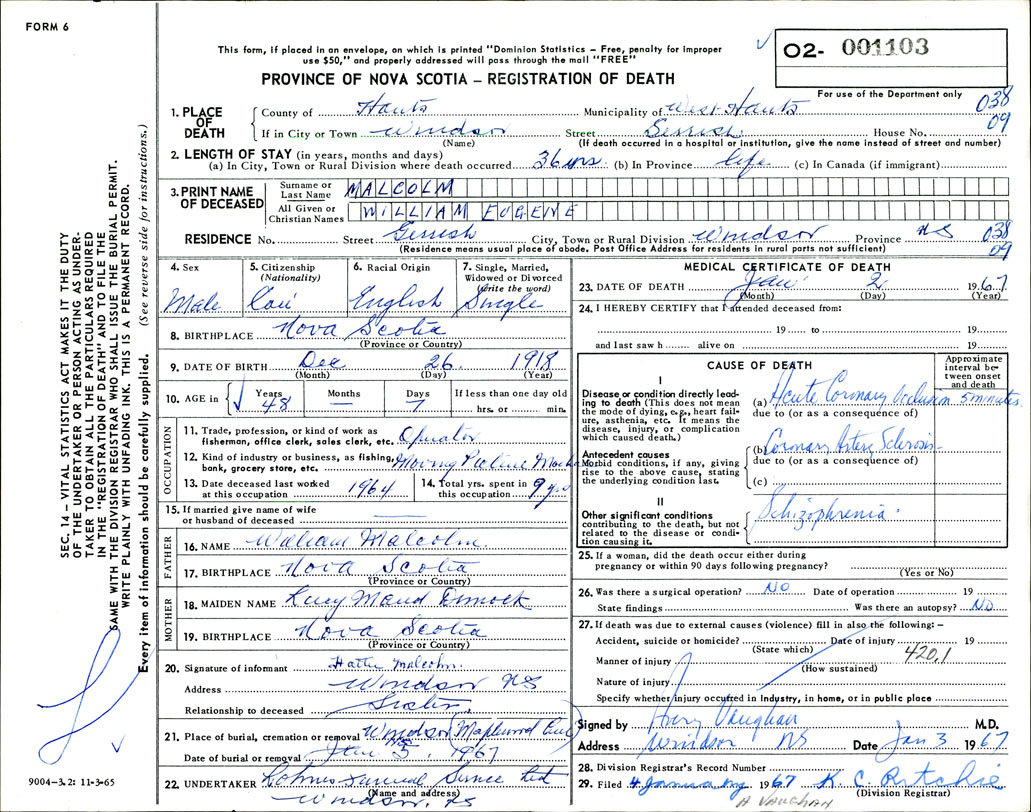 FORM 6
This form, if placed in an envelope, on which is printed "Dominion Statistics – Free, penalty for improper
use $50," and properly addressed will pass through the mail "FREE"
PROVINCE OF NOVA SCOTIA – REGISTRATION OF DEATH
02- 001103
For use of the Department only
038
09
1. PLACE OF DEATH
County of Hants Municipality of West Hants
If in City or Town Windsor Street Gerrish House No.
(Name) (If death occurred in a hospital or institution, give the name instead of street and number)
2. LENGTH OF STAY (in years, months and days)
(a) In City, Town or Rural Division where death occurred 36 yrs. (b) In Province life (c) In Canada (if immigrant)
3. PRINT NAME OF DECEASED
Surname or Last Name MALCOLM
All Given or Christian Names WILLIAM EUGENE
RESIDENCE No. Street Gerrish City, Town or Rural Division Windsor Province NS
(Residence means usual place of abode. Post Office Address for residents in rural parts not sufficient)
038
09
4. Sex Male
5. Citizenship (Nationality) Can
6. Racial Origin English
7. Single, Married, Widowed or Divorced (Write the word) Single
8. BIRTHPLACE Nova Scotia
(Province or Country)
9. DATE OF BIRTH Dec 26 1918
(Month) (Day) (Year)
10. AGE in Years 48 Months — Days 7 If less than one day old hrs. or min.
OCCUPATION
11. Trade, profession, or kind of work as fisherman, office clerk, sales clerk, etc. Operator
12. Kind of industry or business, as fishing, bank, grocery store, etc. Moving Picture
13. Date deceased last worked at this occupation 1964
14. Total yrs. spent in this occupation 9 yrs
15. If married give name of wife or husband of deceased —
FATHER
16. NAME William Malcolm
17. BIRTHPLACE Nova Scotia
(Province or Country)
MOTHER
18. MAIDEN NAME Lucy Maud Dimock
19. BIRTHPLACE Nova Scotia
(Province or Country)
20. Signature of informant Hattie Malcolm
Address Windsor NS
Relationship to deceased Sister
21. Place of burial, cremation or removal Windsor Maplewood Cem NS
Date of burial or removal Jan 5, 1967
22. UNDERTAKER Funeral Service Ltd
(Name and address)
Windsor, NS
MEDICAL CERTIFICATE OF DEATH
23. DATE OF DEATH Jan 2 1967
(Month) (Day) (Year)
24. I HEREBY CERTIFY that I attended deceased from:
19 to 19
and last saw h alive on 19
CAUSE OF DEATH
Approximate interval between onset and death
I
Disease or condition directly leading to death (This does not mean the mode of dying, e.g., heart failure, asthenia, etc. It means the disease, injury, or complication which caused death.)
(a) Acute Coronary Occlusion 5 minutes
due to (or as a consequence of)
Antecedent causes
Morbid conditions, if any, giving rise to the above cause, stating the underlying condition last.
(b) Coronary Artery Sclerosis
due to (or as a consequence of)
(c)
II
Other significant conditions contributing to the death, but not related to the disease or condition causing it.
Schizophrenia
25. If a woman, did the death occur either during
pregnancy or within 90 days following pregnancy?
(Yes or No)
26. Was there a surgical operation? NO Date of operation 19
State findings Was there an autopsy? NO
27. If death was due to external causes (violence) fill in also the following: –
Accident, suicide or homicide? Date of injury 19
(State which)
420.1
Manner of injury
(How sustained)
Nature of injury
Specify whether injury occurred in industry, in home, or in public place
Signed by Harry Vaughan M.D.
Address Windsor NS Date Jan 3 1967
28. Division Registrar's Record Number
29. Filed 4 January 1967 K. C. Ritchie
(Division Registrar)
A VAUGHAN
SEC. 14 – VITAL STATISTICS ACT MAKES IT THE DUTY
OF THE UNDERTAKER OR PERSON ACTING AS UNDER-
TAKER TO OBTAIN ALL THE PARTICULARS REQUIRED
IN THE "REGISTRATION OF DEATH" AND TO FILE THE
SAME WITH THE DIVISION REGISTRAR WHO SHALL ISSUE THE BURIAL PERMIT.
WRITE PLAINLY WITH UNFADING INK. THIS IS A PERMANENT RECORD.
Every item of information should be carefully supplied. (See reverse side for instructions.)
9004–3.2: 11-3-65